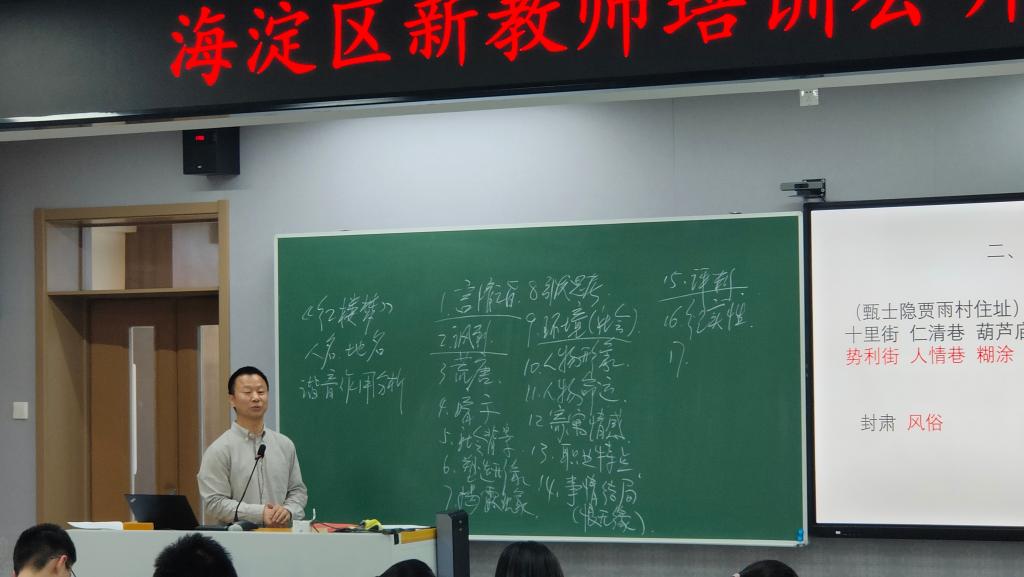 海淀区新教师培训公开
《红楼梦》
人名、地名
谐音作用分析
2.讽刺
3.荒唐
5.社会背景
6.塑造形象
9.环境(社会)
10.人物形象
11.人物命运
12.寄寓情感
13.职业特点
14.事情结局
15.讽刺
16.纪实性
17.
二、
（甄士隐贾雨村住址）
十里街 仁清巷 葫芦庙
势利街 人情巷 糊涂
封肃 风俗